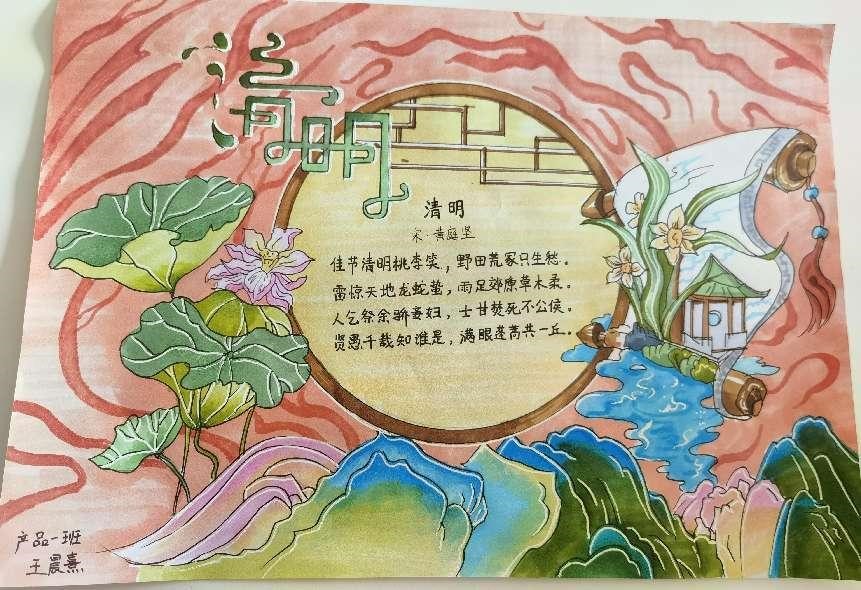 清明
清明
宋·黄庭坚
佳节清明桃李笑，野田荒冢只生愁。
雷惊天地龙蛇蛰，雨足郊原草木柔。
人乞祭余骄妾妇，士甘焚死不公侯。
贤愚千载知谁是，满眼蓬蒿共一丘。
产品一班
王晨熹